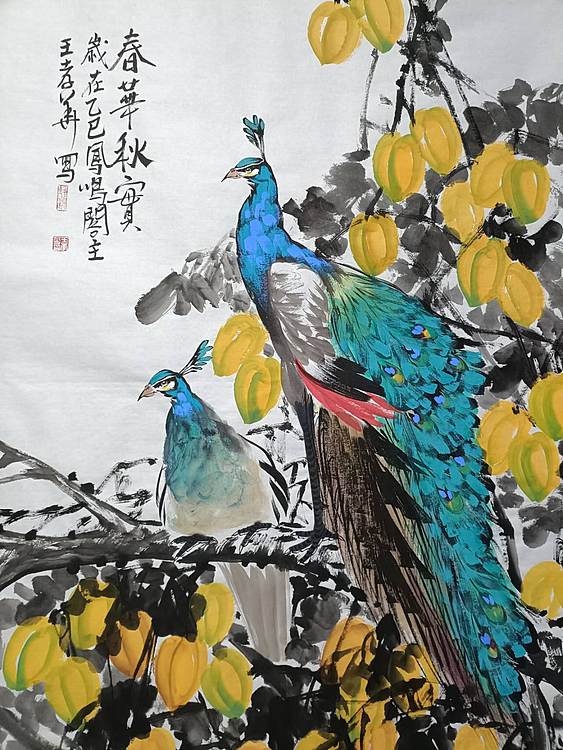 春華秋實
歲在乙巳鳳鳴閣主
王孝華寫